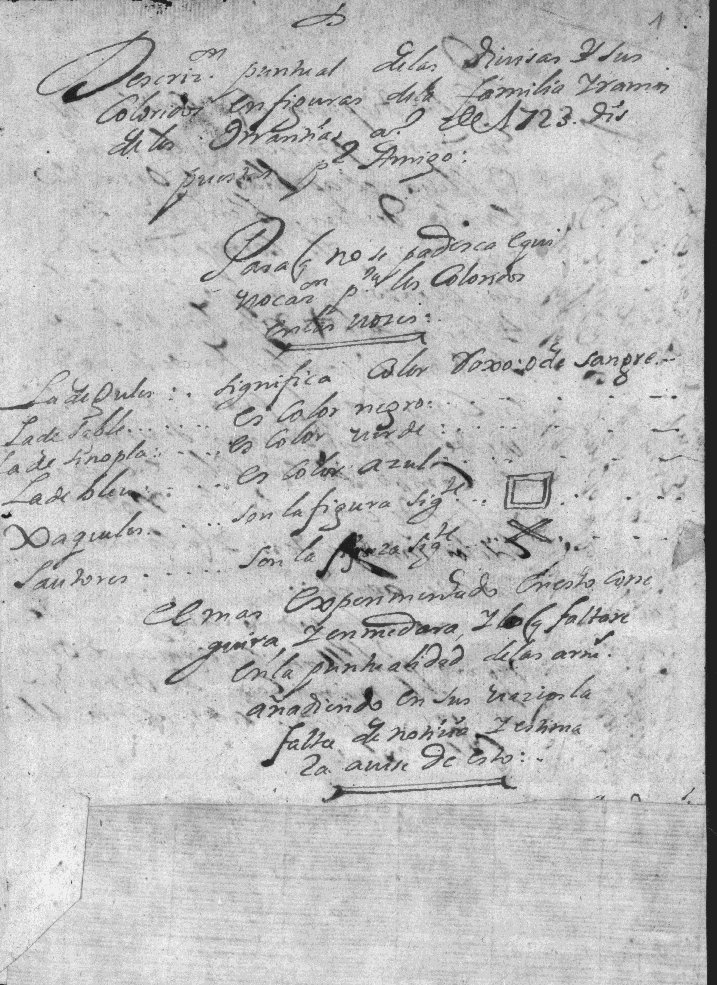 1
Descrizn. puntual de las divisas y sus
Coloridos en figuras de la familia y ramos
de los a. de 1723. dis
puesta pr. Amigo:
Para q no se padesca equi
vocazn. pr. los Coloridos
en las vozes:
La de Gules.. significa Color Roxo: o de sangre.
La de Sable...... es Color negro:
La de Sinopla:.... es Color verde:
La de bleu:.... es Color azul:
Xaqueles..... son la figura sigte...
Sautores..... son la figura sigte...
El mas Experimentado En esto Corre
guira, y enmedara, y lo q faltare
En la puntualidad de las arms.
añadiendo en sus vazios la
falta de notizia y estima
ra avise de esto: